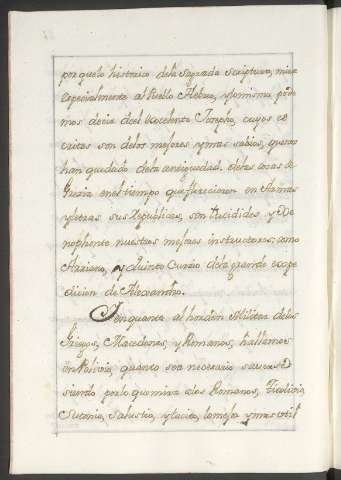 por que lo historico dela Sagrada Scriptura, mira
especialmente al Puello Hebreo, y lo mismo pode
mos decir del Excelente Josepho, cuyos es
critos son delos mejores y mas sabios, que nos
han quedado dela antiguedad. delas cosas de
Grecia en el tiempo que florecieron en Armas
y letras sus Republicas, son Tucidides y Xe
nophonte nuestros mejores instructores: como
Arriano, y Quinto Curcio dela grande expe
dicion de Alexandro.
En quanto al horden Militar delos
Griegos, Macedones, y Romanos, hallamos
en Polivio, quanto sea necesario saverse
siendo por lo que mira alos Romanos, Titolivio,
Suetonio, Salustio, y Tacito, lo mejor y mas util